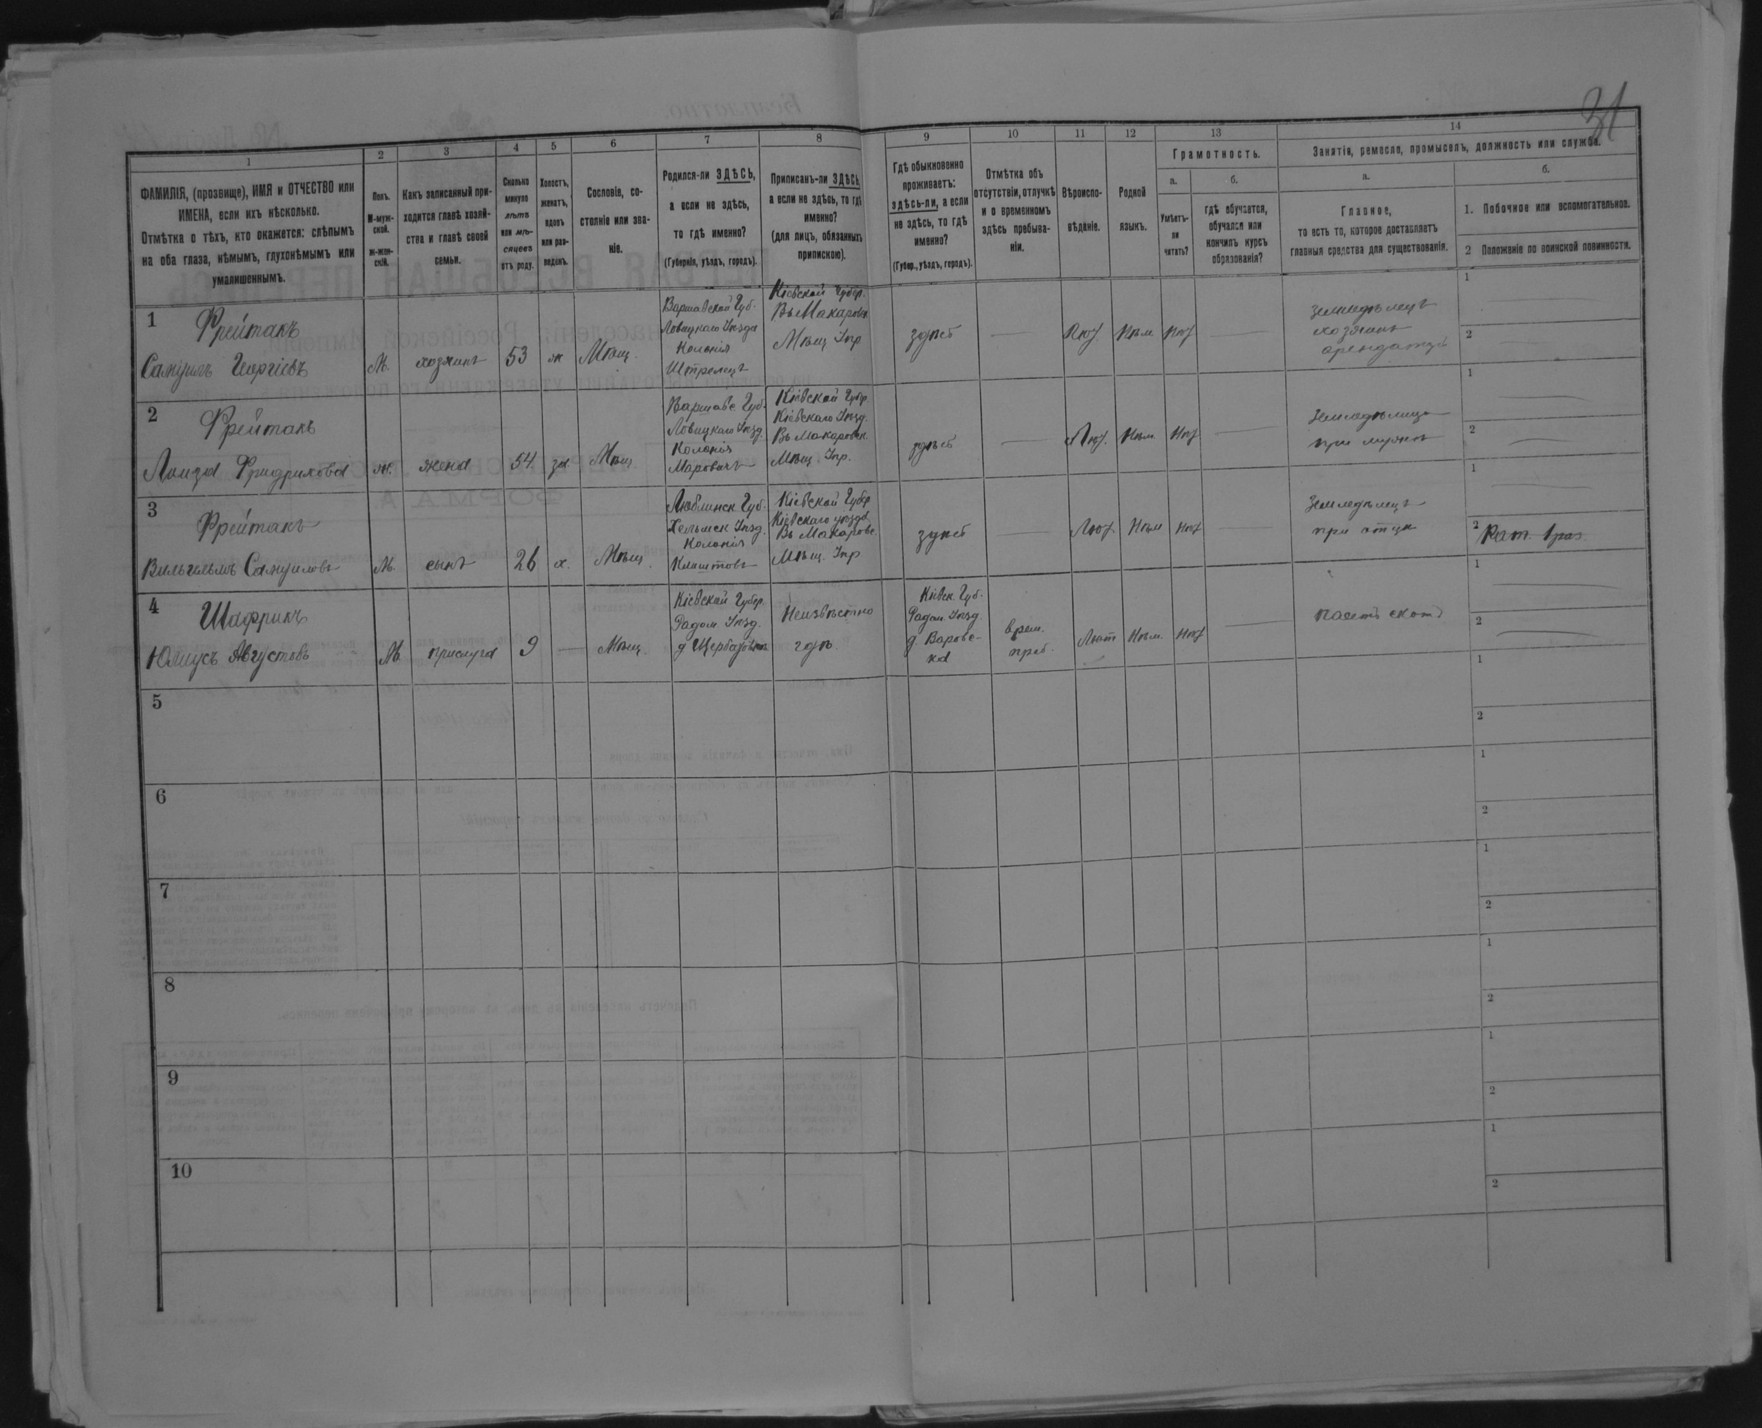 31
1
2
3
4
5
6
7
8
9
10
11
12
13
14
ФАМИЛІЯ, (прозвище), ИМЯ и ОТЧЕСТВО или
ИМЕНА, если ихъ нѣсколько.
Отмѣтка о тѣхъ, кто окажется: слѣпымъ
на оба глаза, нѣмымъ, глухонѣмымъ или
умалишеннымъ.
Полъ.
М-муж-
ской.
ж-жен-
скій.
Какъ записанный при-
ходится главѣ хозяй-
ства и главѣ своей
семьи.
Сколько
минуло
лѣтъ
или мѣ-
сяцевъ
отъ роду.
Холостъ,
женатъ,
вдовъ
или раз-
веденъ.
Сословіе, со-
стояніе или зва-
ніе.
Родился-ли ЗДѢСЬ,
а если не здѣсь,
то гдѣ именно?
(Губернія, уѣздъ, городъ).
Приписанъ-ли ЗДѢСЬ,
а если не здѣсь, то гдѣ
именно?
(для лицъ, обязанныхъ
припискою).
Гдѣ обыкновенно
проживаетъ:
здѣсь-ли, а если
не здѣсь, то гдѣ
именно?
(Губер., уѣздъ, городъ).
Отмѣтка объ
отсутствіи, отлучкѣ
и о временномъ
здѣсь пребыва-
ніи.
Вѣроиспо-
вѣданіе.
Родной
языкъ.
Грамотность.
а.
Умѣетъ-
ли
читать?
б.
гдѣ обучается,
обучался или
кончилъ курсъ
образованія?
Занятіе, ремесло, промыселъ, должность или служба.
а.
Главное,
то есть то, которое доставляетъ
главныя средства для существованія.
б.
1. Побочное или вспомогательное.
2 Положеніе по воинской повинности.
1
Фрейтакъ
Самуилъ Георгіевъ
М.
хозяинъ
53
ж
Мѣщ.
Варшавской Губ.
Ловицкаго Уѣзда
Колонія
Кіевской Губер.
Мѣщ. Упр
здѣсь
—
Лют.
Нѣм
нѣт
—
земледѣлецъ
хозяинъ
арендаторъ
1
2
2
Фрейтакъ
Луиза Фридрихова
ж.
жена
54
за
Мѣщ
Ловицкаго Уѣзд.
Колонія
Кіевской Губер.
Кіевскаго Уѣзд.
Мѣщ. Упр.
здѣсь
—
Лют.
Нѣм
нѣт
—
при мужѣ
1
2
3
Фрейтакъ
Вильгельмъ Самуиловъ
М.
сынъ
26
х.
Мѣщ.
Люблинск. Губ.
Хельмск Уѣзд.
Колонія
Кіевской Губер
Кіевскаго уѣзда
Мѣщ. Упр
здѣсь
—
Лют.
Нѣм
нѣт
—
Земледѣлецъ
при отцѣ
1
2 Рат. 1 раз.
4
Шафрикъ
Юліусъ Августовъ
М.
прислуга
9
—
Мѣщ.
Кіевской Губер.
Радом Уѣзд.
Неизвѣстно
гдѣ.
Кіевск. Губ.
Радом Уѣзд.
врем.
преб.
Лют
Нѣм.
нѣт
—
пасетъ скотъ
1
2
5
1
2
6
1
2
7
1
2
8
1
2
9
1
2
10
1
2